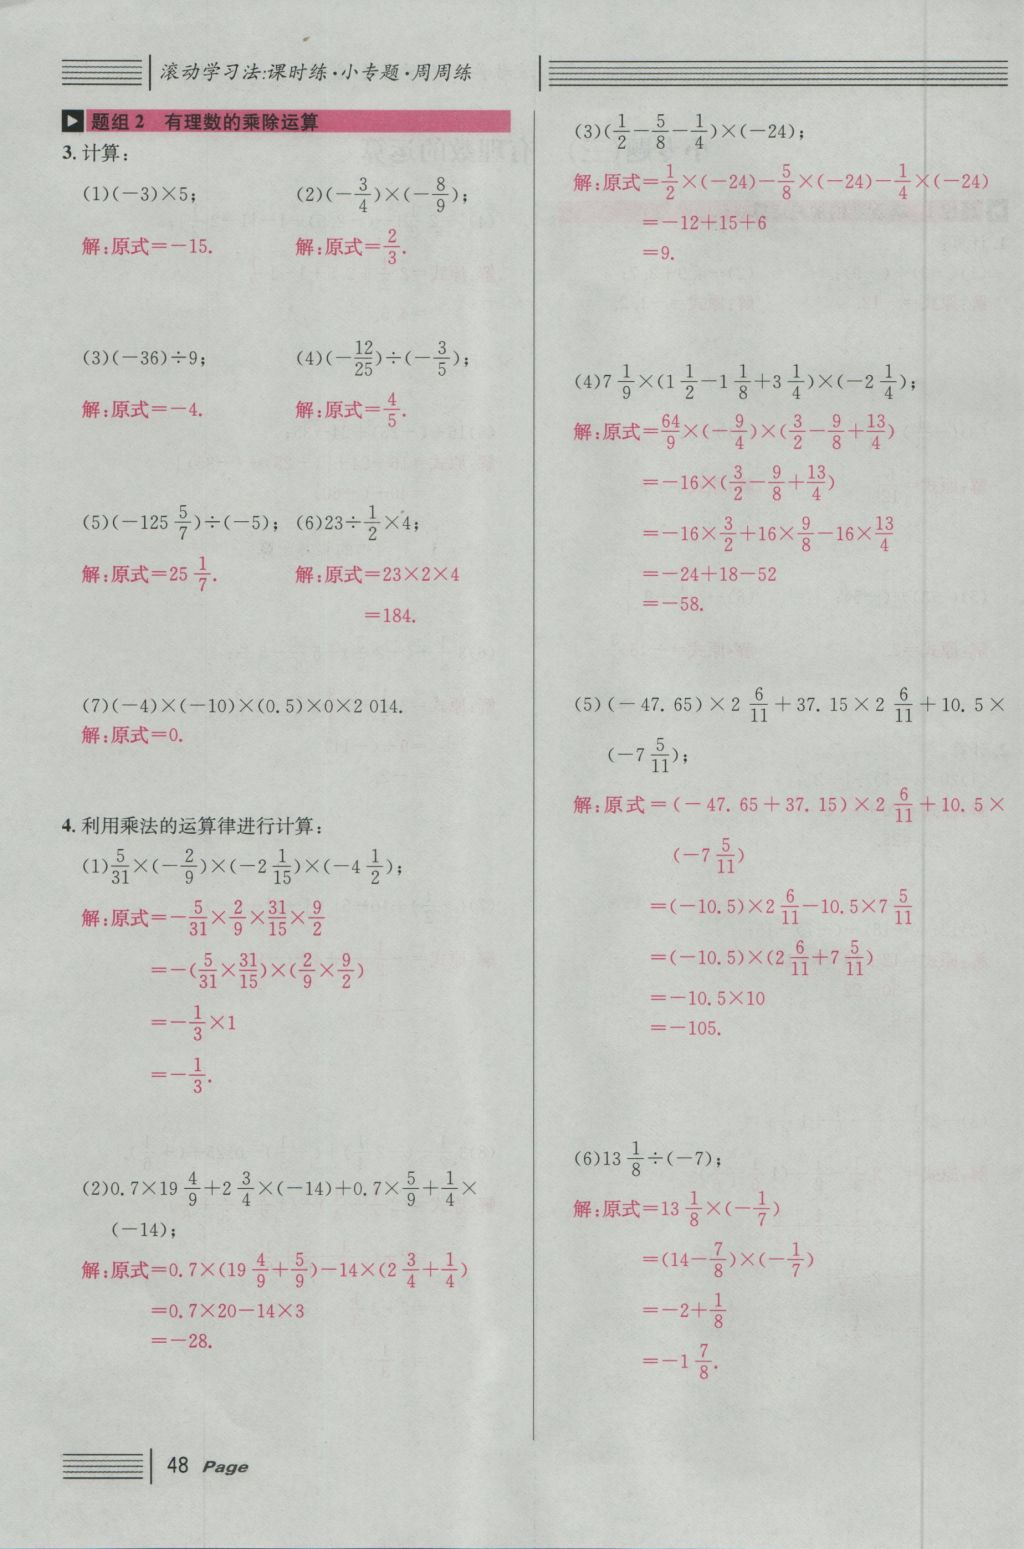 滚动学习法:课时练·小专题·周周练
题组2 有理数的乘除运算
3. 计算:
(1)(-3)×5; (2)(-3/4)×(-8/9);
解:原式=-15. 解:原式=2/3.
(3)(-36)÷9; (4)(-12/25)÷(-3/5);
解:原式=-4. 解:原式=4/5.
(5)(-125 5/7)÷(-5); (6)23÷1/2×4;
解:原式=25 1/7. 解:原式=23×2×4
=184.
(7)(-4)×(-10)×(0.5)×0×2 014.
解:原式=0.
4. 利用乘法的运算律进行计算:
(1)5/31×(-2/9)×(-2 1/15)×(-4 1/2);
解:原式=-5/31×2/9×31/15×9/2
=-(5/31×31/15)×(2/9×9/2)
=-1/3×1
=-1/3.
(2)0.7×19 4/9+2 3/4×(-14)+0.7×5/9+1/4×
(-14);
解:原式=0.7×(19 4/9+5/9)-14×(2 3/4+1/4)
=0.7×20-14×3
=-28.
(3)(1/2-5/8-1/4)×(-24);
解:原式=1/2×(-24)-5/8×(-24)-1/4×(-24)
=-12+15+6
=9.
(4)7 1/9×(1 1/2-1 1/8+3 1/4)×(-2 1/4);
解:原式=64/9×(-9/4)×(3/2-9/8+13/4)
=-16×(3/2-9/8+13/4)
=-16×3/2+16×9/8-16×13/4
=-24+18-52
=-58.
(5)(-47.65)×2 6/11+37.15×2 6/11+10.5×
(-7 5/11);
解:原式=(-47.65+37.15)×2 6/11+10.5×
(-7 5/11)
=(-10.5)×2 6/11-10.5×7 5/11
=(-10.5)×(2 6/11+7 5/11)
=-10.5×10
=-105.
(6)13 1/8÷(-7);
解:原式=13 1/8×(-1/7)
=(14-7/8)×(-1/7)
=-2+1/8
=-1 7/8.
48 Page